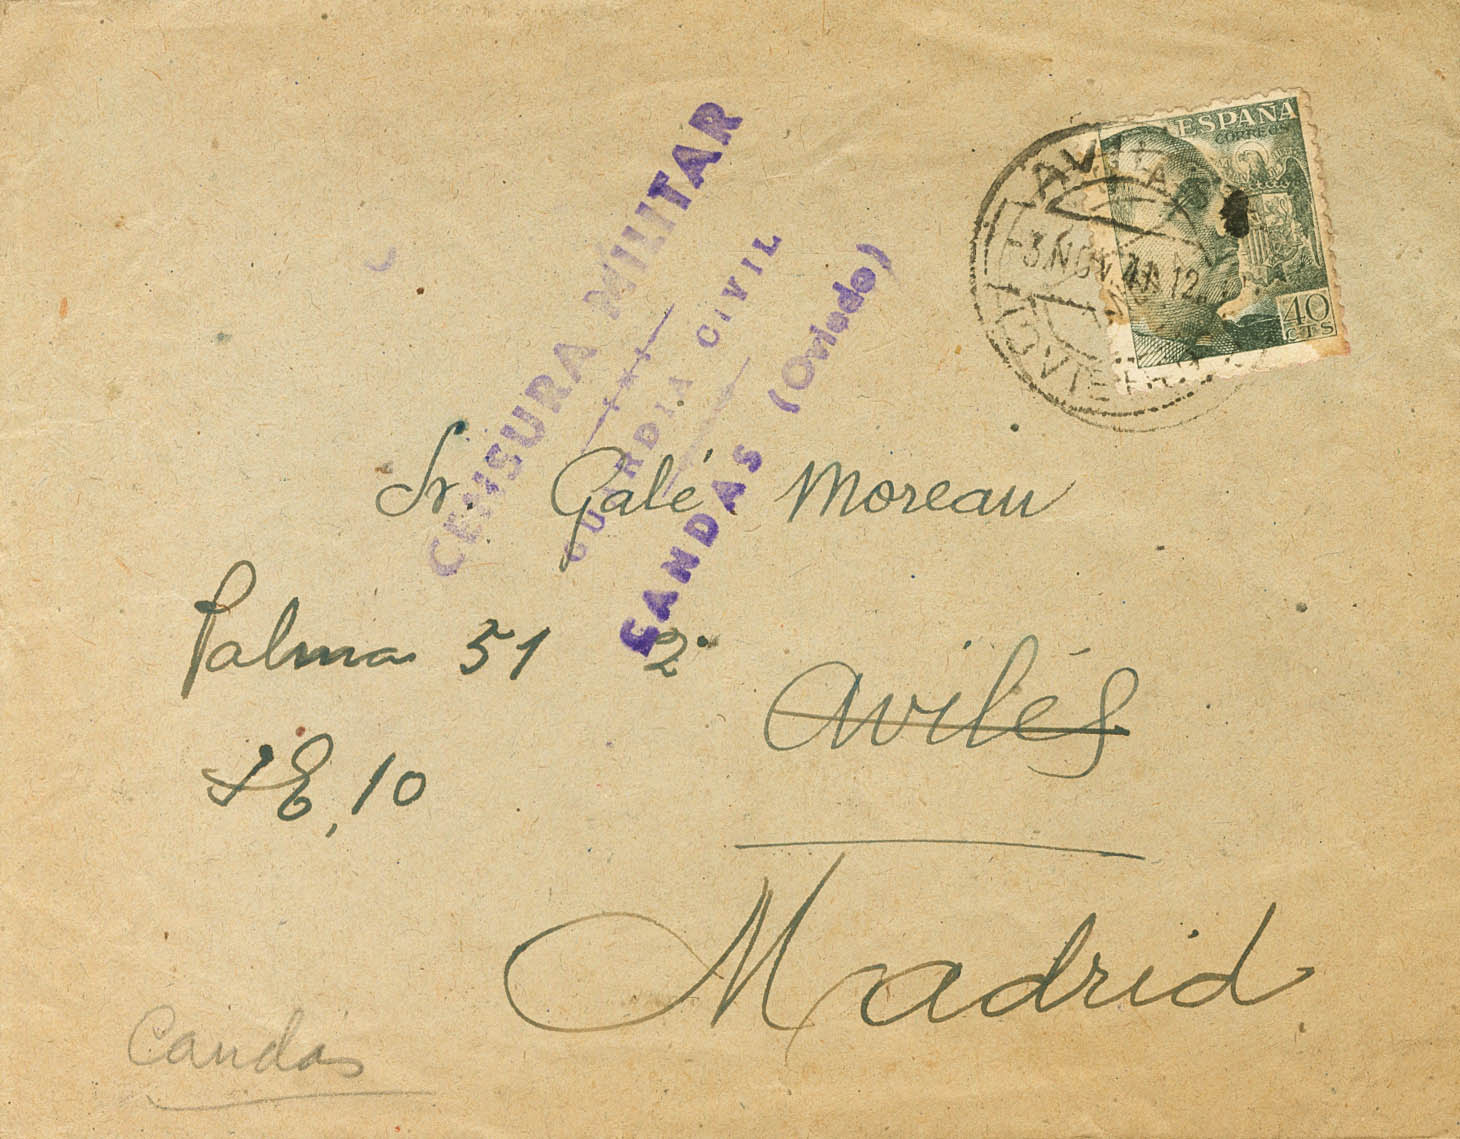 ESPAÑA
CORREOS
40
CTS
-3.NOV.41.12
CENSURA MILITAR
GUARDIA CIVIL
CANDAS (Oviedo)
Sr. Galé Moreau
Palma 51 2º
Avilés
Madrid
Candás